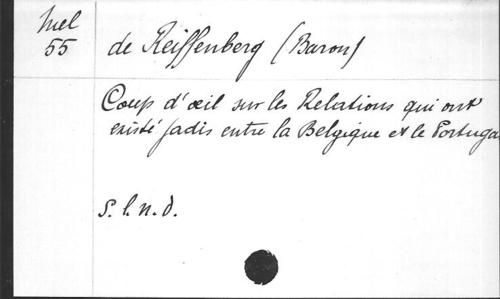 Mel
55
de Reiffenberg (Baron)
Coup d'œil sur les Relations qui ont
existé jadis entre la Belgique et le Portuga
S. l. n. d.